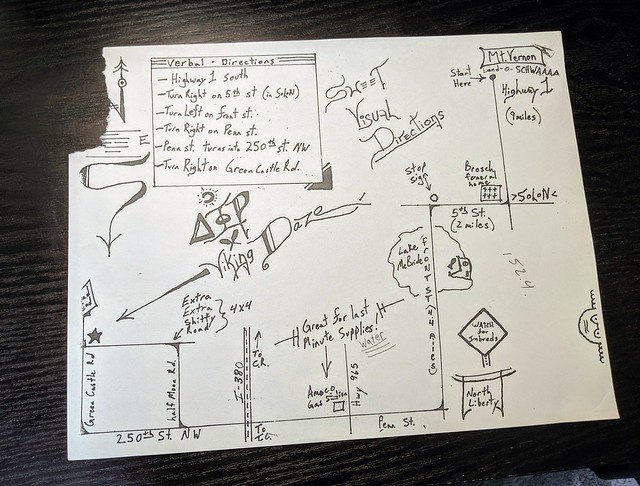 Verbal • Directions
- Highway 1 South
- Turn Right on 5th st (in Solon)
- Turn Left on front st.
- Turn Right on Penn st.
- Penn st. turns into 250th st. NW
- Turn Right on Green Castle Rd.
E
Visual
Directions
Mt. Vernon
Land-O-SCHWAAAA
Start
Here
Highway 1
(9 miles)
Stop
sign
Brosch
funeral
home
>SoloN<
5th St.
(2 miles)
Viking Daze
Lake
McBride
FRONT ST (4 miles)
152.4.
Extra
Extra
Shitty
Road
4x4
Great for last
Minute Supplies.
water
WATCH
for
Inbreds
North
Liberty
To
C.R.
I-380
To
I.C.
Amoco
Gas Station
Hwy 965
Green Castle Rd
half Moon Rd.
250th St. NW
Penn St.